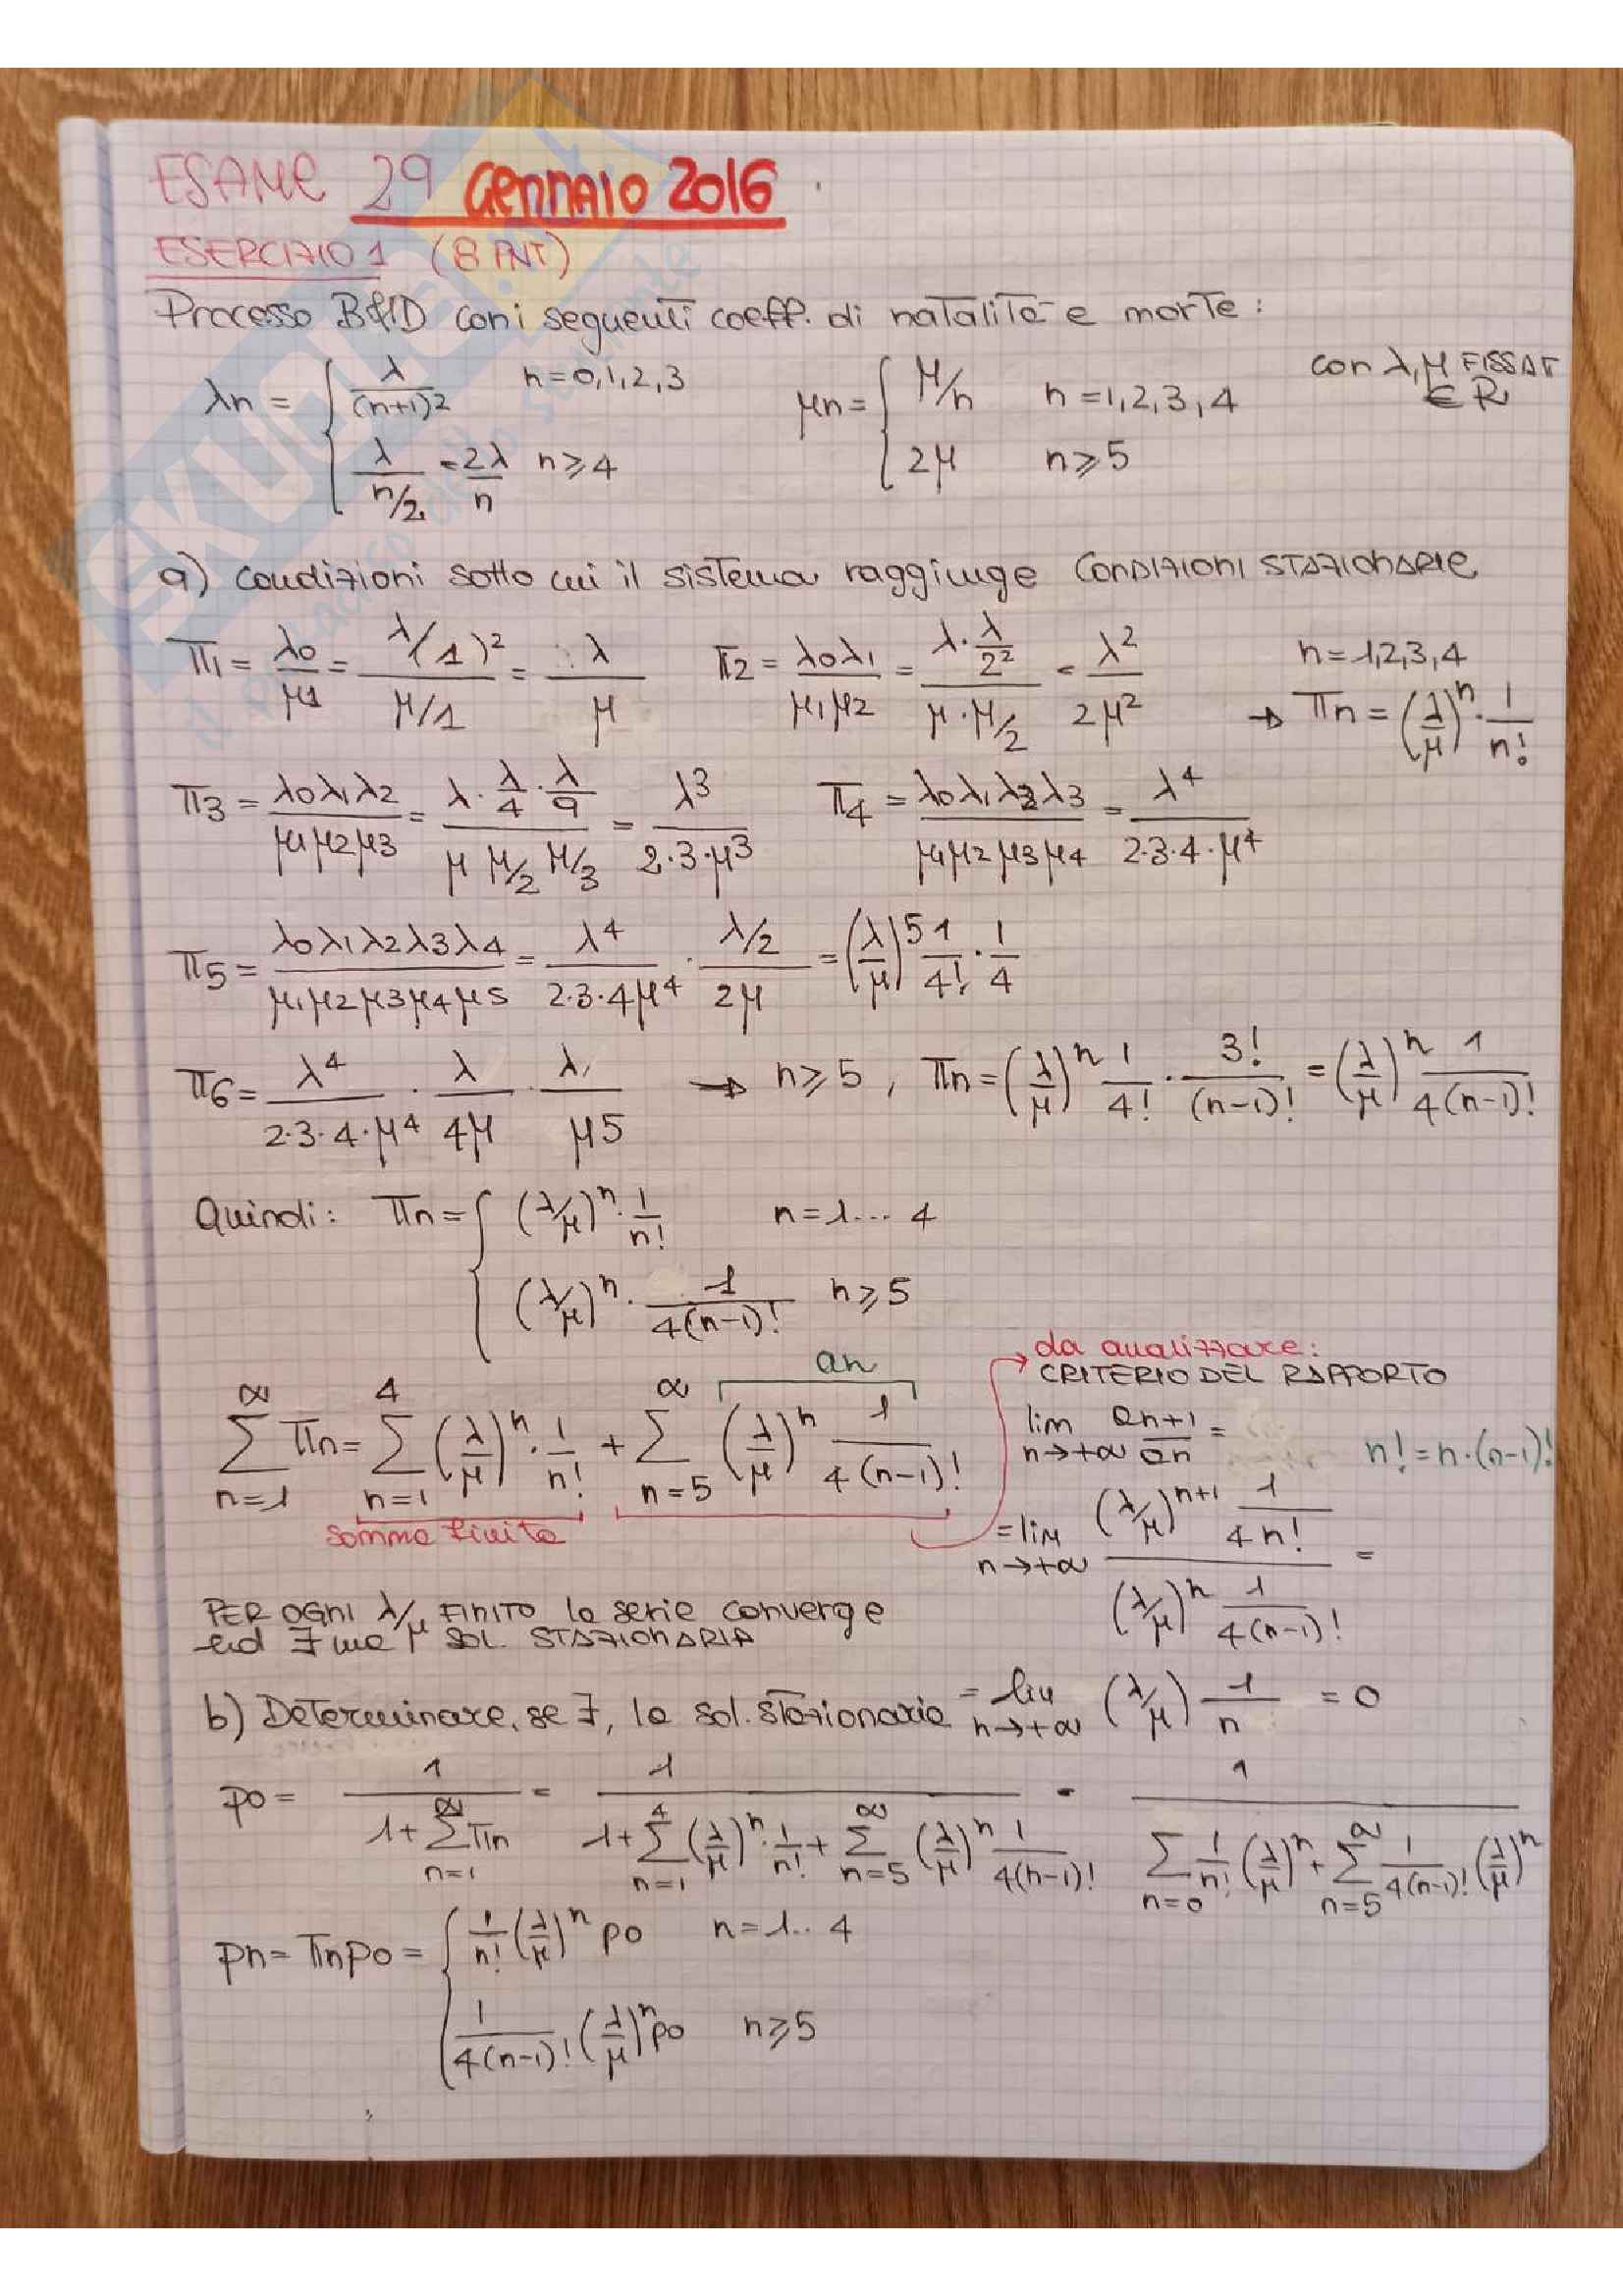 ESAME 29 GENNAIO 2016
ESERCIZIO 1 (8 PNT)
Processo B&D con i seguenti coeff. di natalità e morte:
λn = { λ/(n+1)² n=0,1,2,3
λ/(n/2) = 2λ/n n≥4
μn = { μ/n n=1,2,3,4
2μ n≥5
con λ,μ FISSAT
∈ R
a) condizioni sotto cui il sistema raggiunge CONDIZIONI STAZIONARIE
π1 = λ0/μ1 = (λ/(1)²)/(μ/1) = λ/μ π2 = λ0λ1/μ1μ2 = (λ·λ/2²)/(μ·μ/2) = λ²/2μ² n=1,2,3,4
→ πn = (λ/μ)^n · 1/n!
π3 = λ0λ1λ2/μ1μ2μ3 = (λ·λ/4·λ/9)/(μ μ/2 μ/3) = λ³/(2·3·μ³) π4 = λ0λ1λ2λ3/μ1μ2μ3μ4 = λ⁴/(2·3·4·μ⁴)
π5 = λ0λ1λ2λ3λ4/μ1μ2μ3μ4μ5 = λ⁴/(2·3·4μ⁴) · (λ/2)/2μ = (λ/μ)^5 1/4! · 1/4
π6 = λ⁴/(2·3·4·μ⁴) · λ/4μ · λ/μ5 → n≥5, πn = (λ/μ)^n 1/4! · 3!/(n-1)! = (λ/μ)^n 1/4(n-1)!
Quindi: πn = { (λ/μ)^n · 1/n! n=1...4
(λ/μ)^n · 1/4(n-1)! n≥5
an
da analizzare:
CRITERIO DEL RAPPORTO
∞Σn=1 πn = 4Σn=1 (λ/μ)^n · 1/n! + ∞Σn=5 (λ/μ)^n 1/4(n-1)!
somma finita
lim n→+∞ an+1/an =
n! = n·(n-1)!
= lim n→+∞ ((λ/μ)^n+1 1/4n!)/((λ/μ)^n 1/4(n-1)!) =
PER OGNI λ/μ FINITO la serie converge
ed ∃ una SOL. STAZIONARIA
= lim n→+∞ (λ/μ) 1/n = 0
b) Determinare, se ∃, la sol. stazionaria
p0 = 1/(1+∞Σn=1 πn) = 1/(1+4Σn=1 (λ/μ)^n · 1/n! + ∞Σn=5 (λ/μ)^n 1/4(n-1)!) = 1/(Σn=0 1/n! (λ/μ)^n + ∞Σn=5 1/4(n-1)! (λ/μ)^n)
pn = πn p0 = { 1/n! (λ/μ)^n p0 n=1..4
1/4(n-1)! (λ/μ)^n p0 n≥5